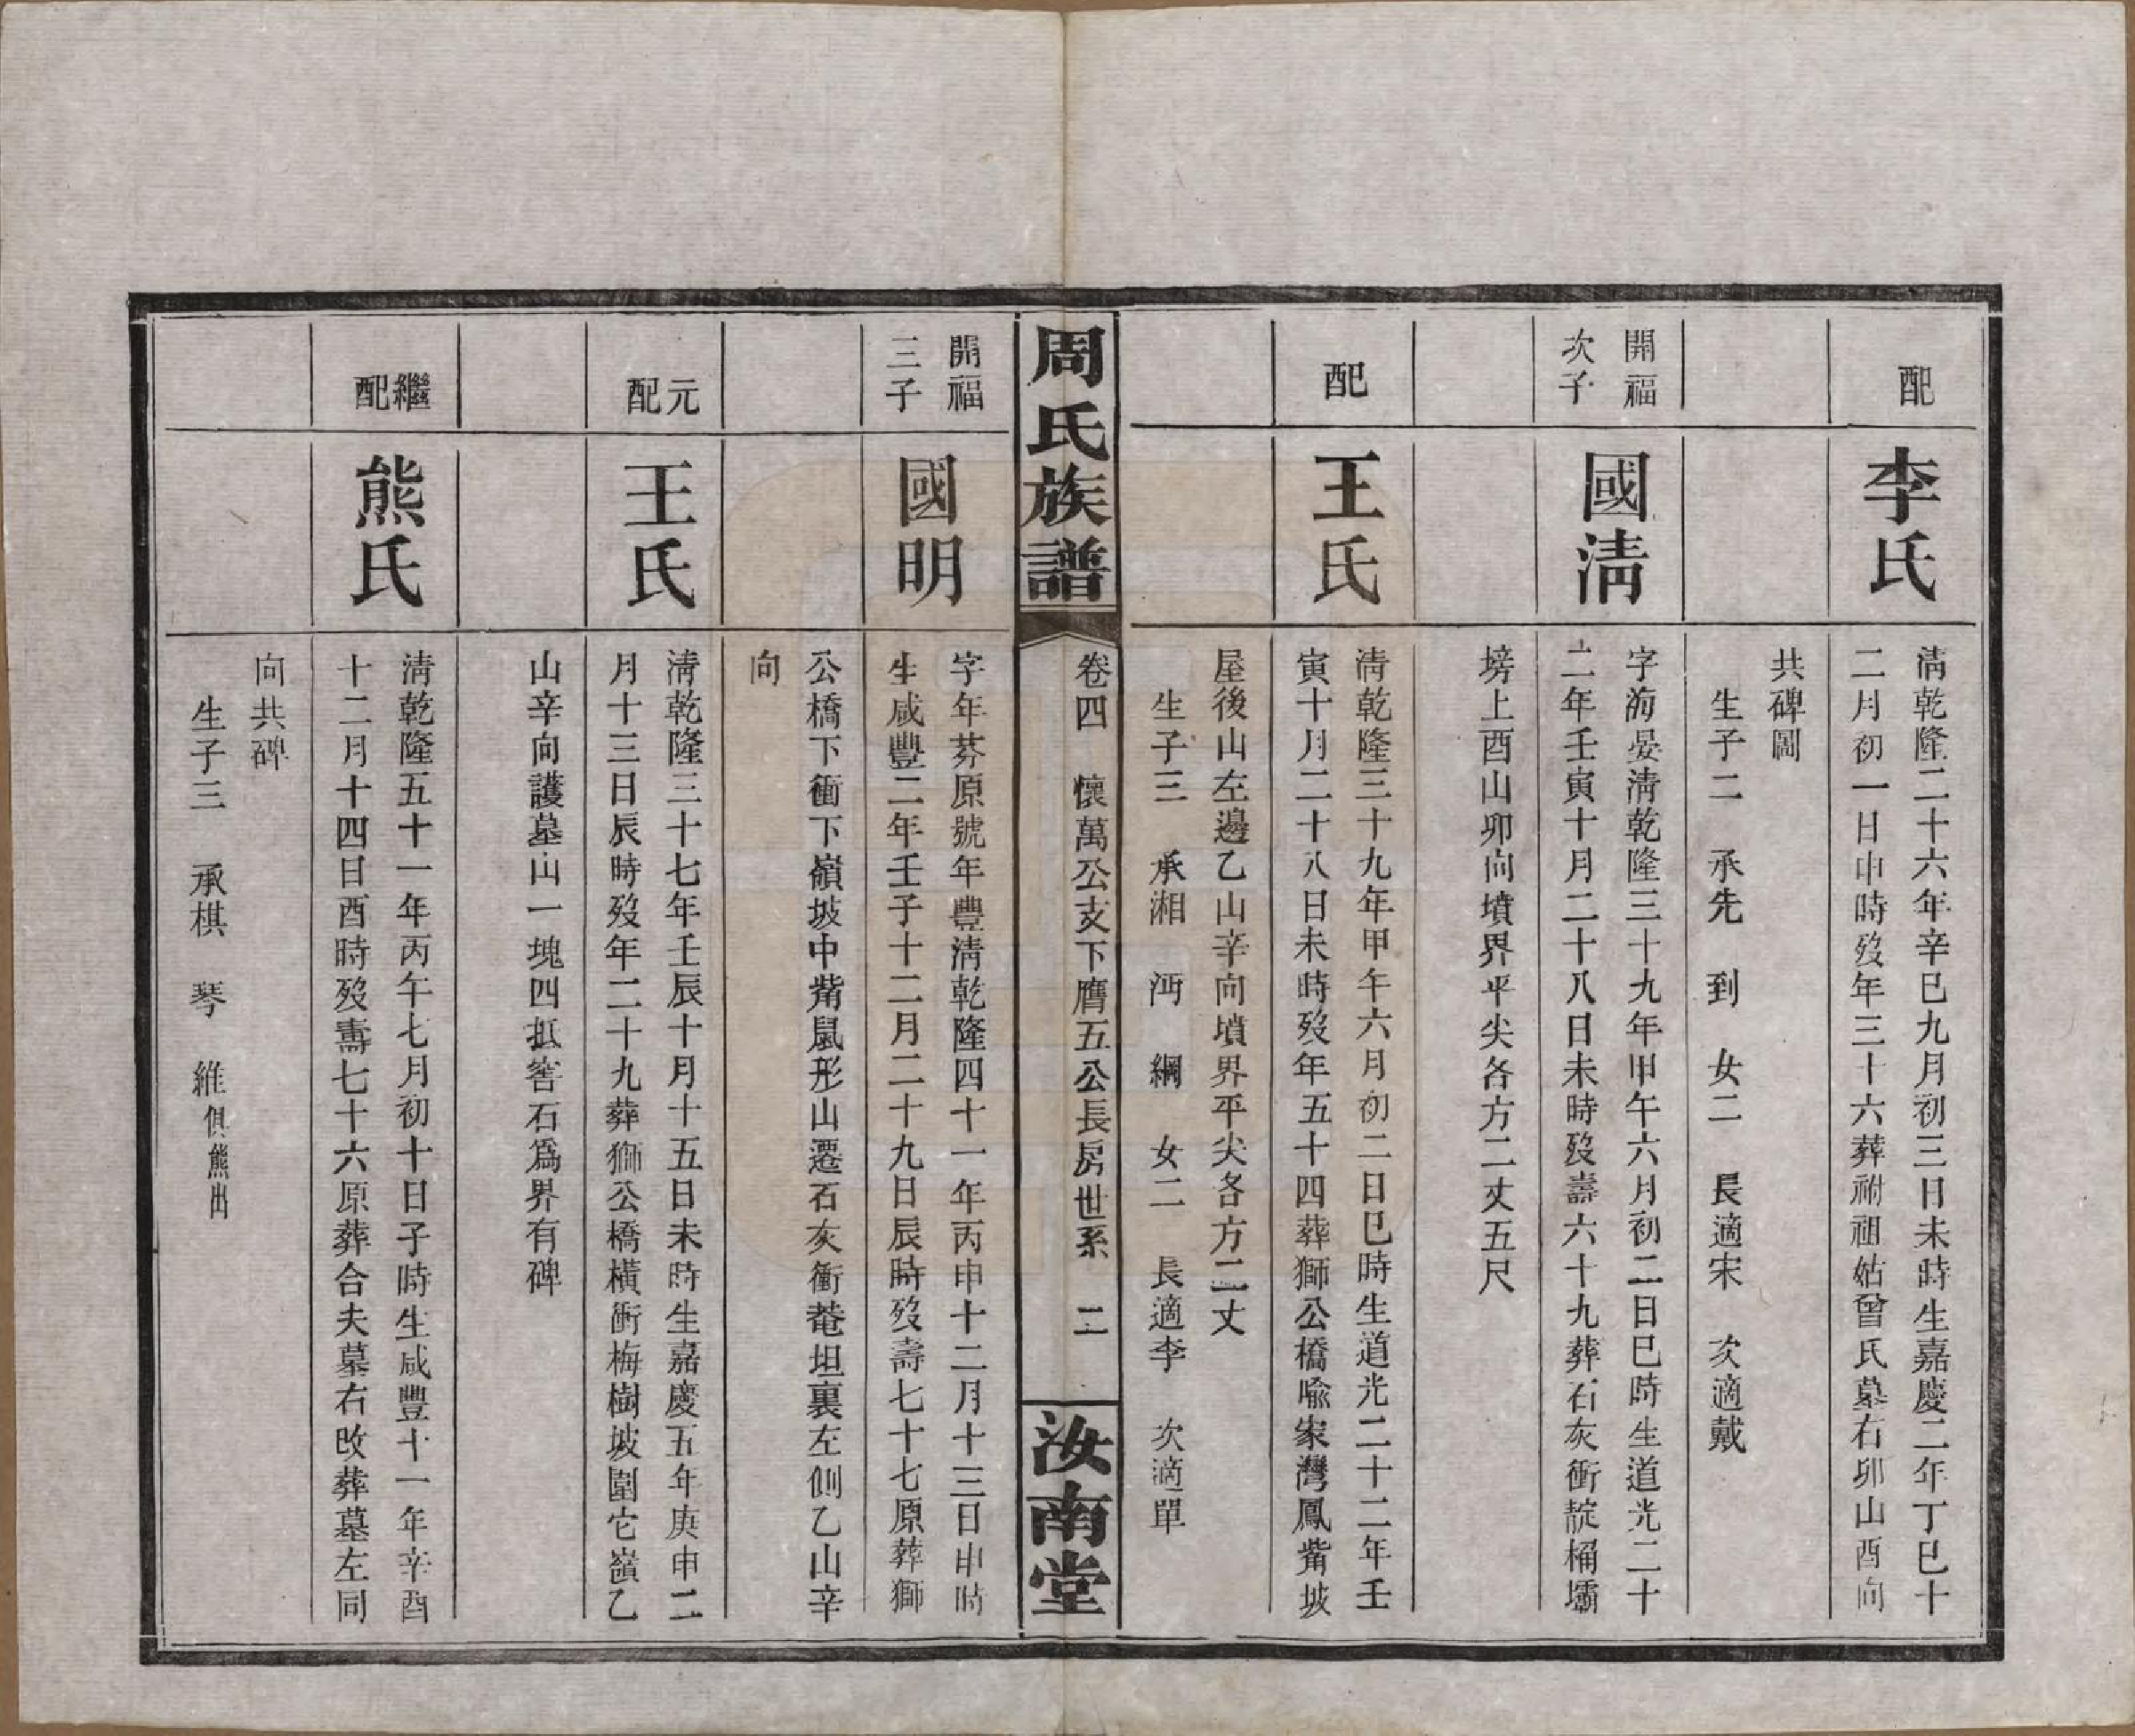 配
李氏
清乾隆二十六年辛巳九月初三日未時生嘉慶二年丁巳十
二月初一日申時歿年三十六葬祔祖姑曾氏墓右卯山酉向
共碑圖
生子二　承先　到　女二　長適宋　次適戴
開福
次子
國清
字海晏清乾隆三十九年甲午六月初二日巳時生道光二十
二年壬寅十月二十八日未時歿壽六十九葬石灰衝靛桶壩
塝上酉山卯向墳界平尖各方二丈五尺
配
王氏
清乾隆三十九年甲午六月初二日巳時生道光二十二年壬
寅十月二十八日未時歿年五十四葬獅公橋喻家灣鳳觜坡
屋後山左邊乙山辛向墳界平尖各方二丈
生子三　承湘　沔　綱　女二　長適李　次適單
周氏族譜
卷四　懷萬公支下膺五公長房世系　二
汝南堂
開福
三子
國明
字年芬原號年豐清乾隆四十一年丙申十二月十三日申時
生咸豐二年壬子十二月二十九日辰時歿壽七十七原葬獅
公橋下衝下嶺坡中觜鼠形山遷石灰衝菴坦裏左側乙山辛
向
元配
王氏
清乾隆三十七年壬辰十月十五日未時生嘉慶五年庚申二
月十三日辰時歿年二十九葬獅公橋橫衝梅樹坡圍它嶺乙
山辛向護墓山一塊四抵窖石爲界有碑
繼配
熊氏
清乾隆五十一年丙午七月初十日子時生咸豐十一年辛酉
十二月十四日酉時歿壽七十六原葬合夫墓右改葬墓左同
向共碑
生子三　承棋　琴　維俱熊出